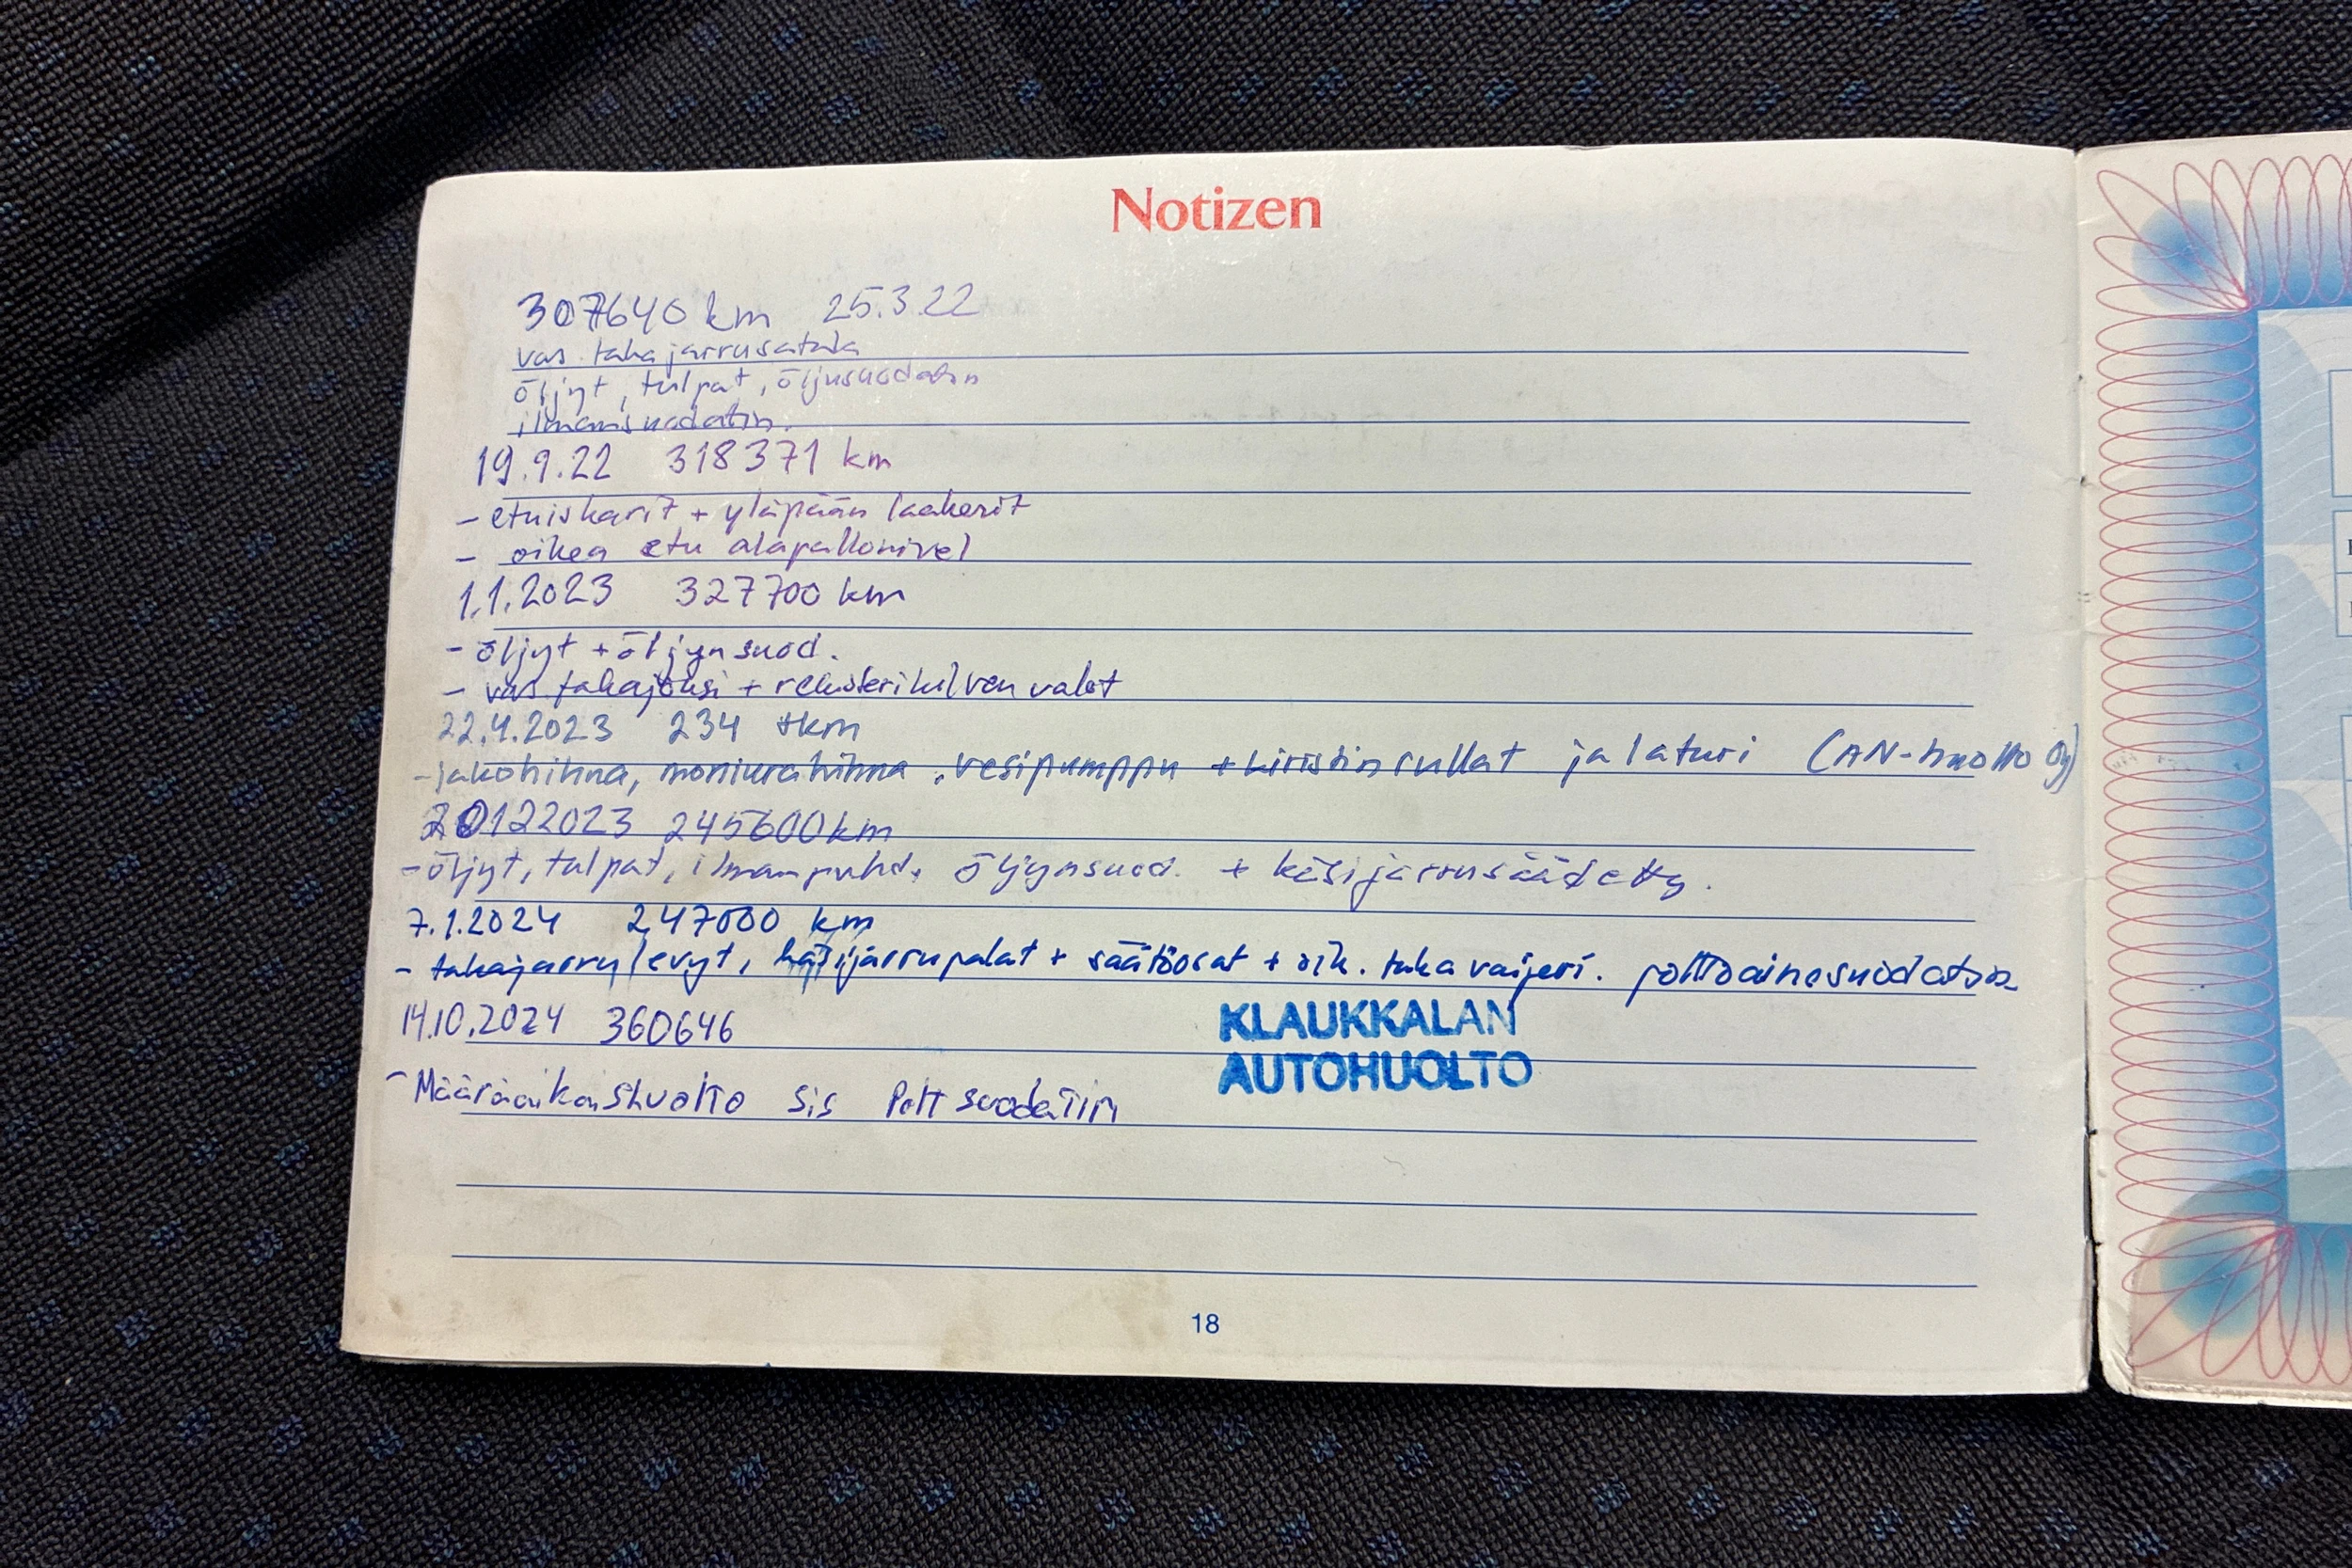 Notizen
307640 km 25.3.22
vas. takajarrusatula
öljyt, tulpat, öljusuodatin
ilmansuodatin.
19.9.22 318371 km
- etuiskarit + yläpään laakerit
- oikea etu alapallonivel
1.1.2023 327700 km
- öljyt + öljynsuod.
- vas takajousi + rekisterikilven valot
22.4.2023 234 tkm
- jakohihna, moniurahihna, vesipumppu + kiristinrullat ja laturi (AN-huolto Oy)
20122023 245600 km
- öljyt, tulpat, ilmanpuhd, öljynsuod. + käsijarrusäädetty.
7.1.2024 247000 km
- takajarrulevyt, käsijarrupalat + säätöosat + oik. taka vaijeri. polttoainesuodatin
14.10.2024 360646
KLAUKKALAN
AUTOHUOLTO
- Määräaikaishuolto sis Polt suodatin
18